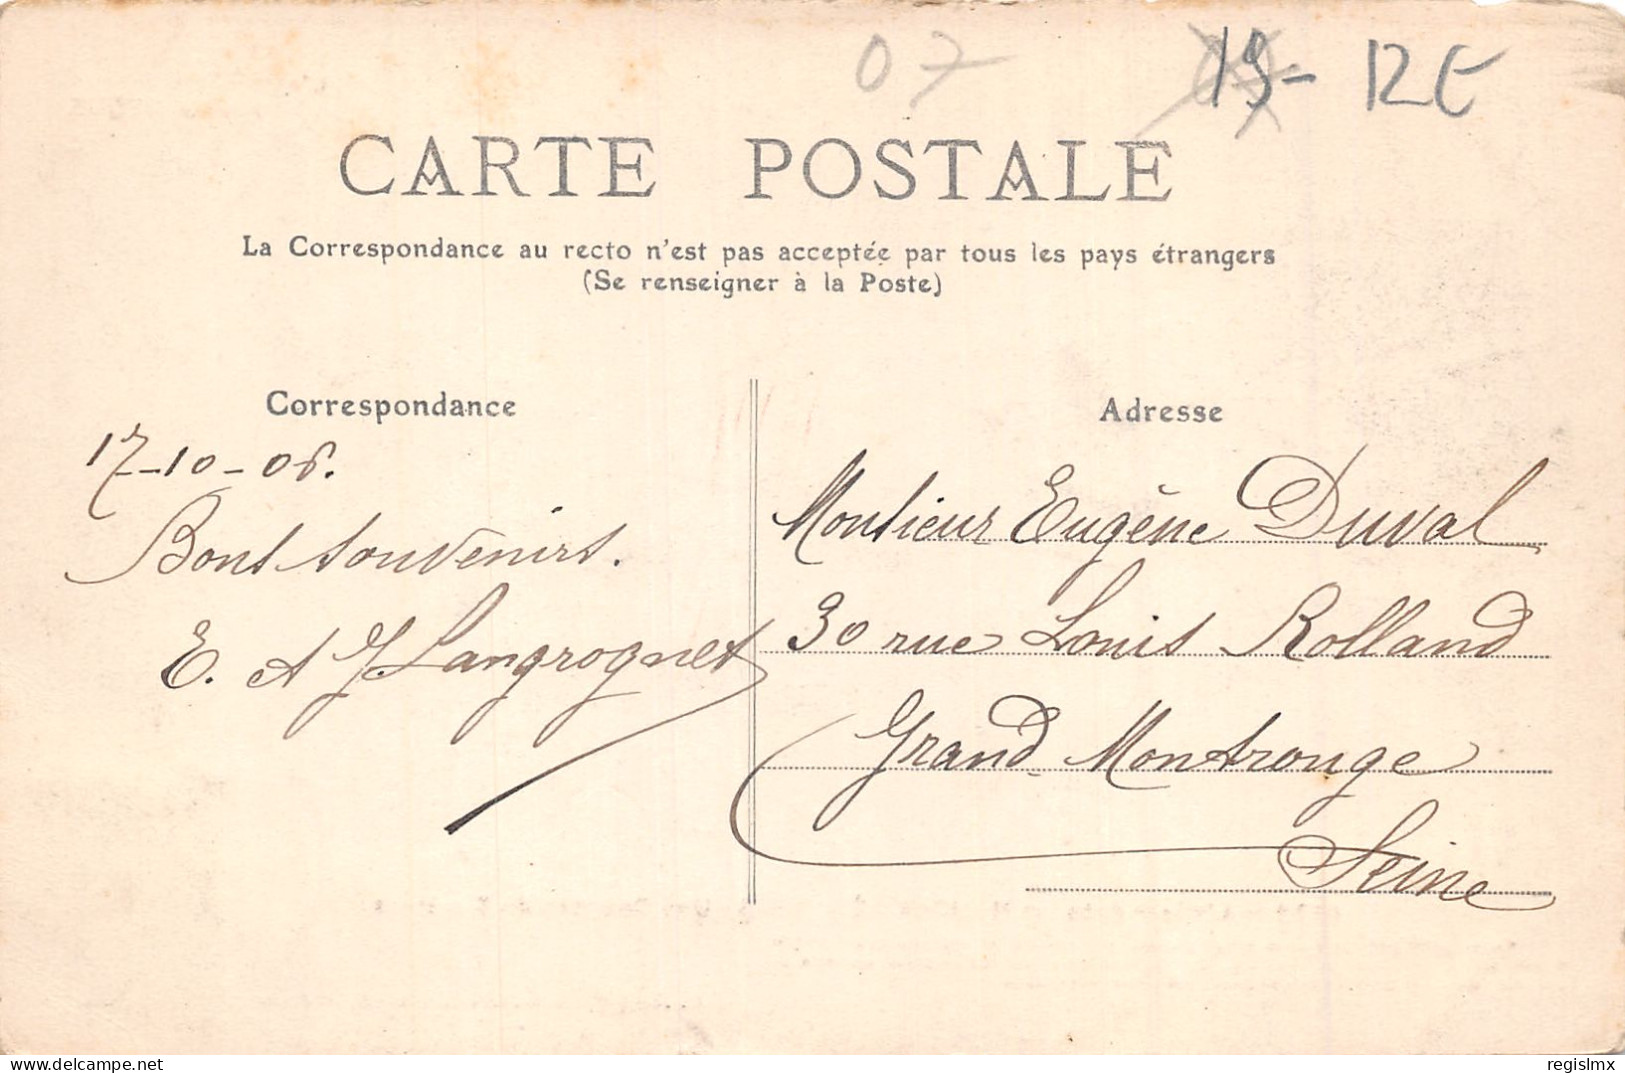 07 19- 12€
CARTE POSTALE
La Correspondance au recto n'est pas acceptée par tous les pays étrangers
(Se renseigner à la Poste)
Correspondance
17-10-06.
Bons souvenirs.
E. et J Langrognet
Adresse
Monsieur Eugène Duval
30 rue Louis Rolland
Grand Montrouge
Seine
delcampe.net
regislmx